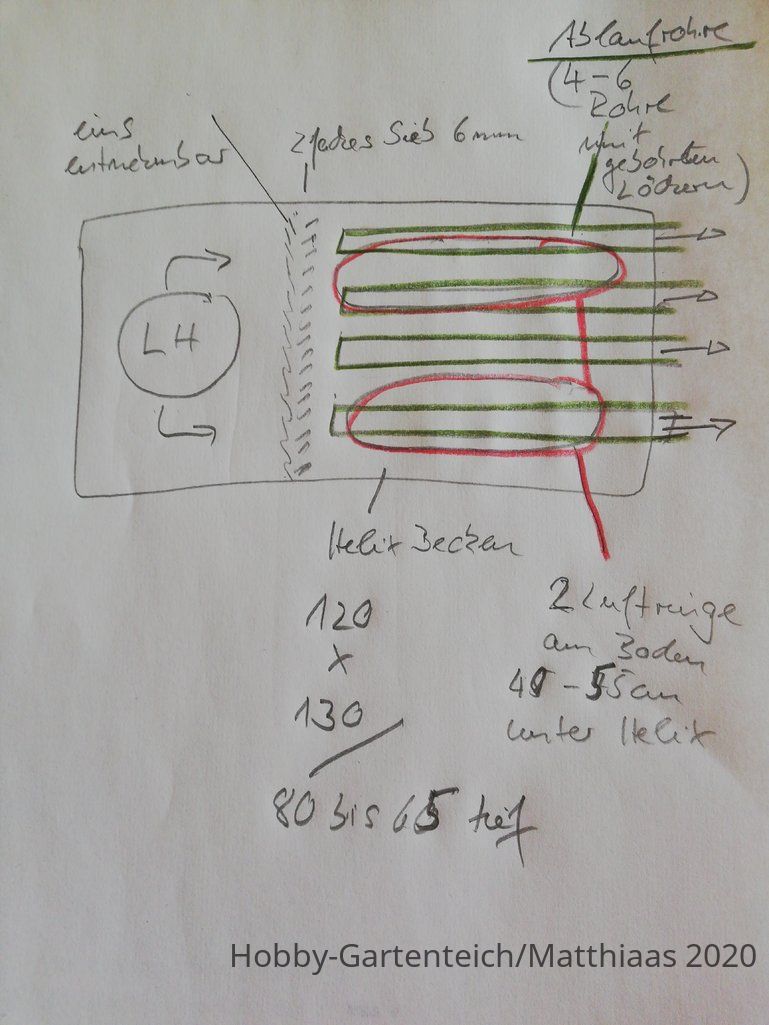 Ablaufrohre
(4-6
Rohre
mit
gebohrten
Löchern)
eins
entnehmbar
2faches Sieb 6mm
LH
Helix Becken
120
x
130
80 bis 65 tief
2 Luftringe
am Boden
45-55cm
unter Helix
Hobby-Gartenteich/Matthiaas 2020